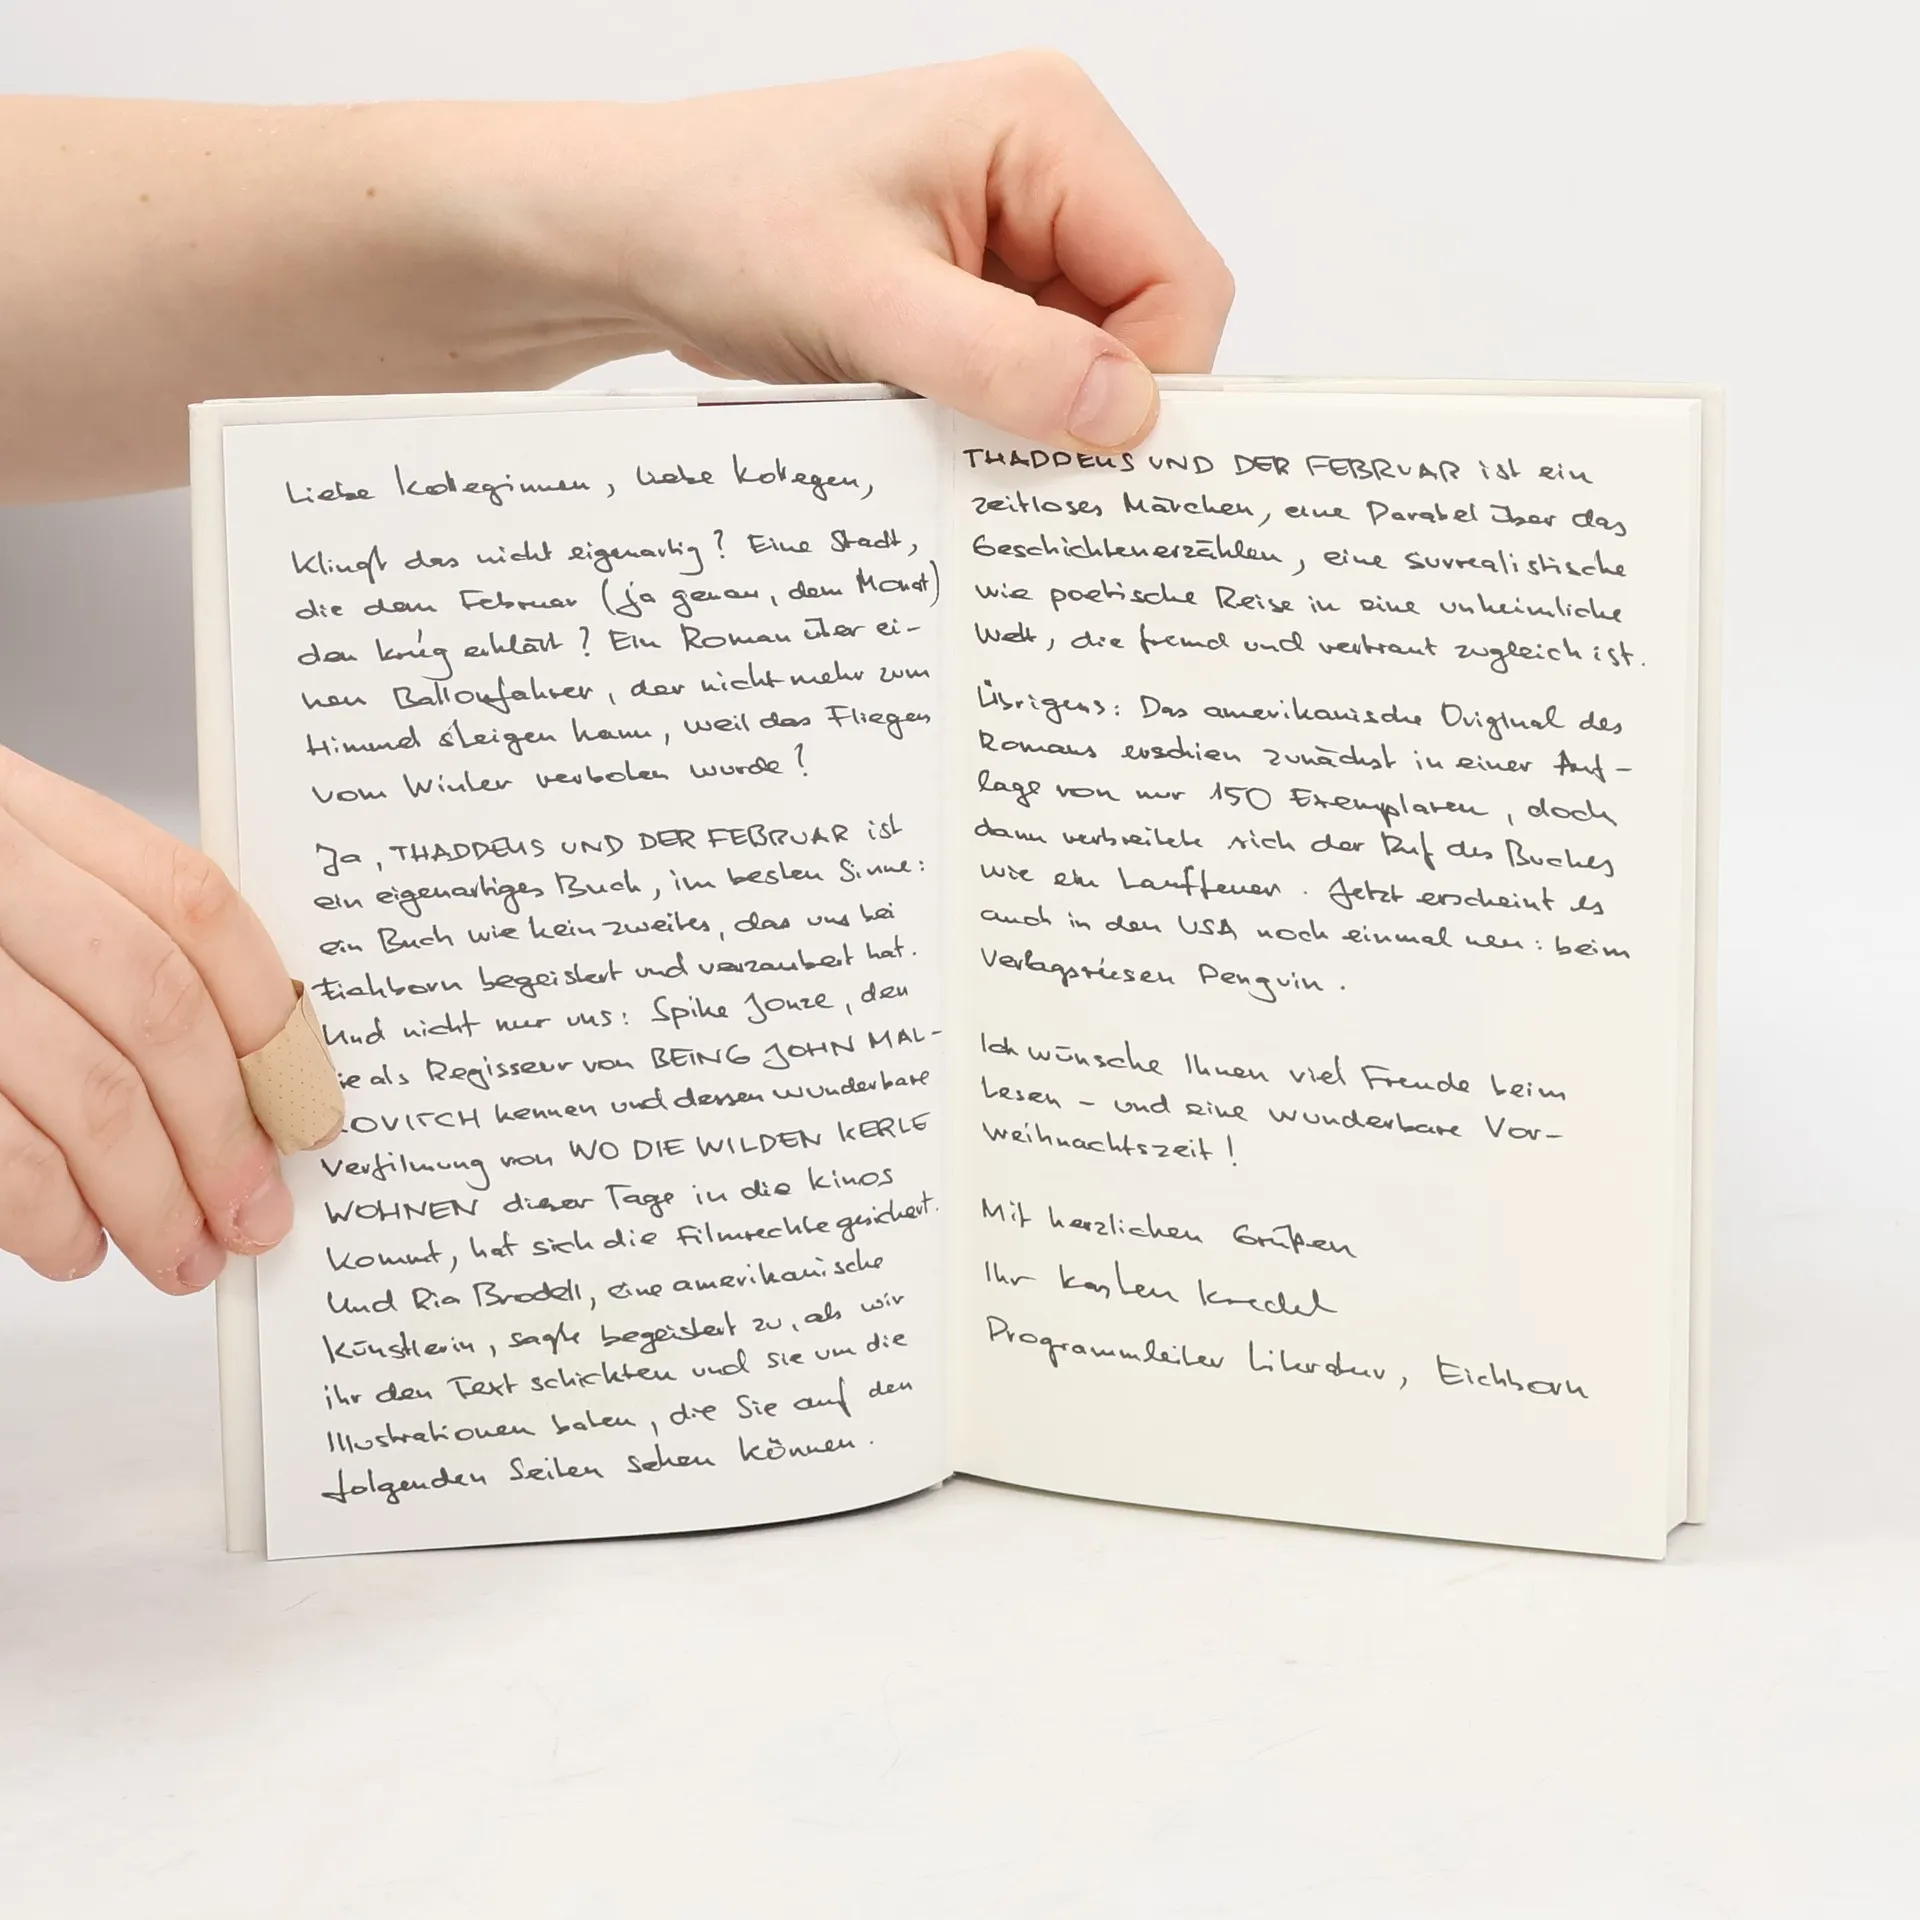 Liebe Kolleginnen, liebe Kollegen,
Klingt das nicht eigenartig? Eine Stadt,
die dem Februar (ja genau, dem Monat)
den Krieg erklärt? Ein Roman über ei-
nen Ballonfahrer, der nicht mehr zum
Himmel steigen kann, weil das Fliegen
vom Winter verboten wurde?
Ja, THADDEUS UND DER FEBRUAR ist
ein eigenartiges Buch, im besten Sinne:
ein Buch wie kein zweites, das uns bei
Eichborn begeistert und verzaubert hat.
Und nicht nur uns: Spike Jonze, den
ie als Regisseur von BEING JOHN MAL-
KOVITCH kennen und dessen wunderbare
Verfilmung von WO DIE WILDEN KERLE
WOHNEN dieser Tage in die Kinos
kommt, hat sich die Filmrechte gesichert.
Und Ria Brodell, eine amerikanische
Künstlerin, sagte begeistert zu, als wir
ihr den Text schickten und sie um die
Illustrationen baten, die Sie auf den
folgenden Seiten sehen können.
THADDEUS UND DER FEBRUAR ist ein
zeitloses Märchen, eine Parabel über das
Geschichtenerzählen, eine surrealistische
wie poetische Reise in eine unheimliche
Welt, die fremd und vertraut zugleich ist.
Übrigens: Das amerikanische Original des
Romans erschien zunächst in einer Auf-
lage von nur 150 Exemplaren, doch
dann verbreitete sich der Ruf des Buches
wie ein Lauffeuer. Jetzt erscheint es
auch in den USA noch einmal neu: beim
Verlagsriesen Penguin.
Ich wünsche Ihnen viel Freude beim
Lesen – und eine wunderbare Vor-
weihnachtszeit!
Mit herzlichen Grüßen
Ihr Karsten Kredel
Programmleiter Literatur, Eichborn